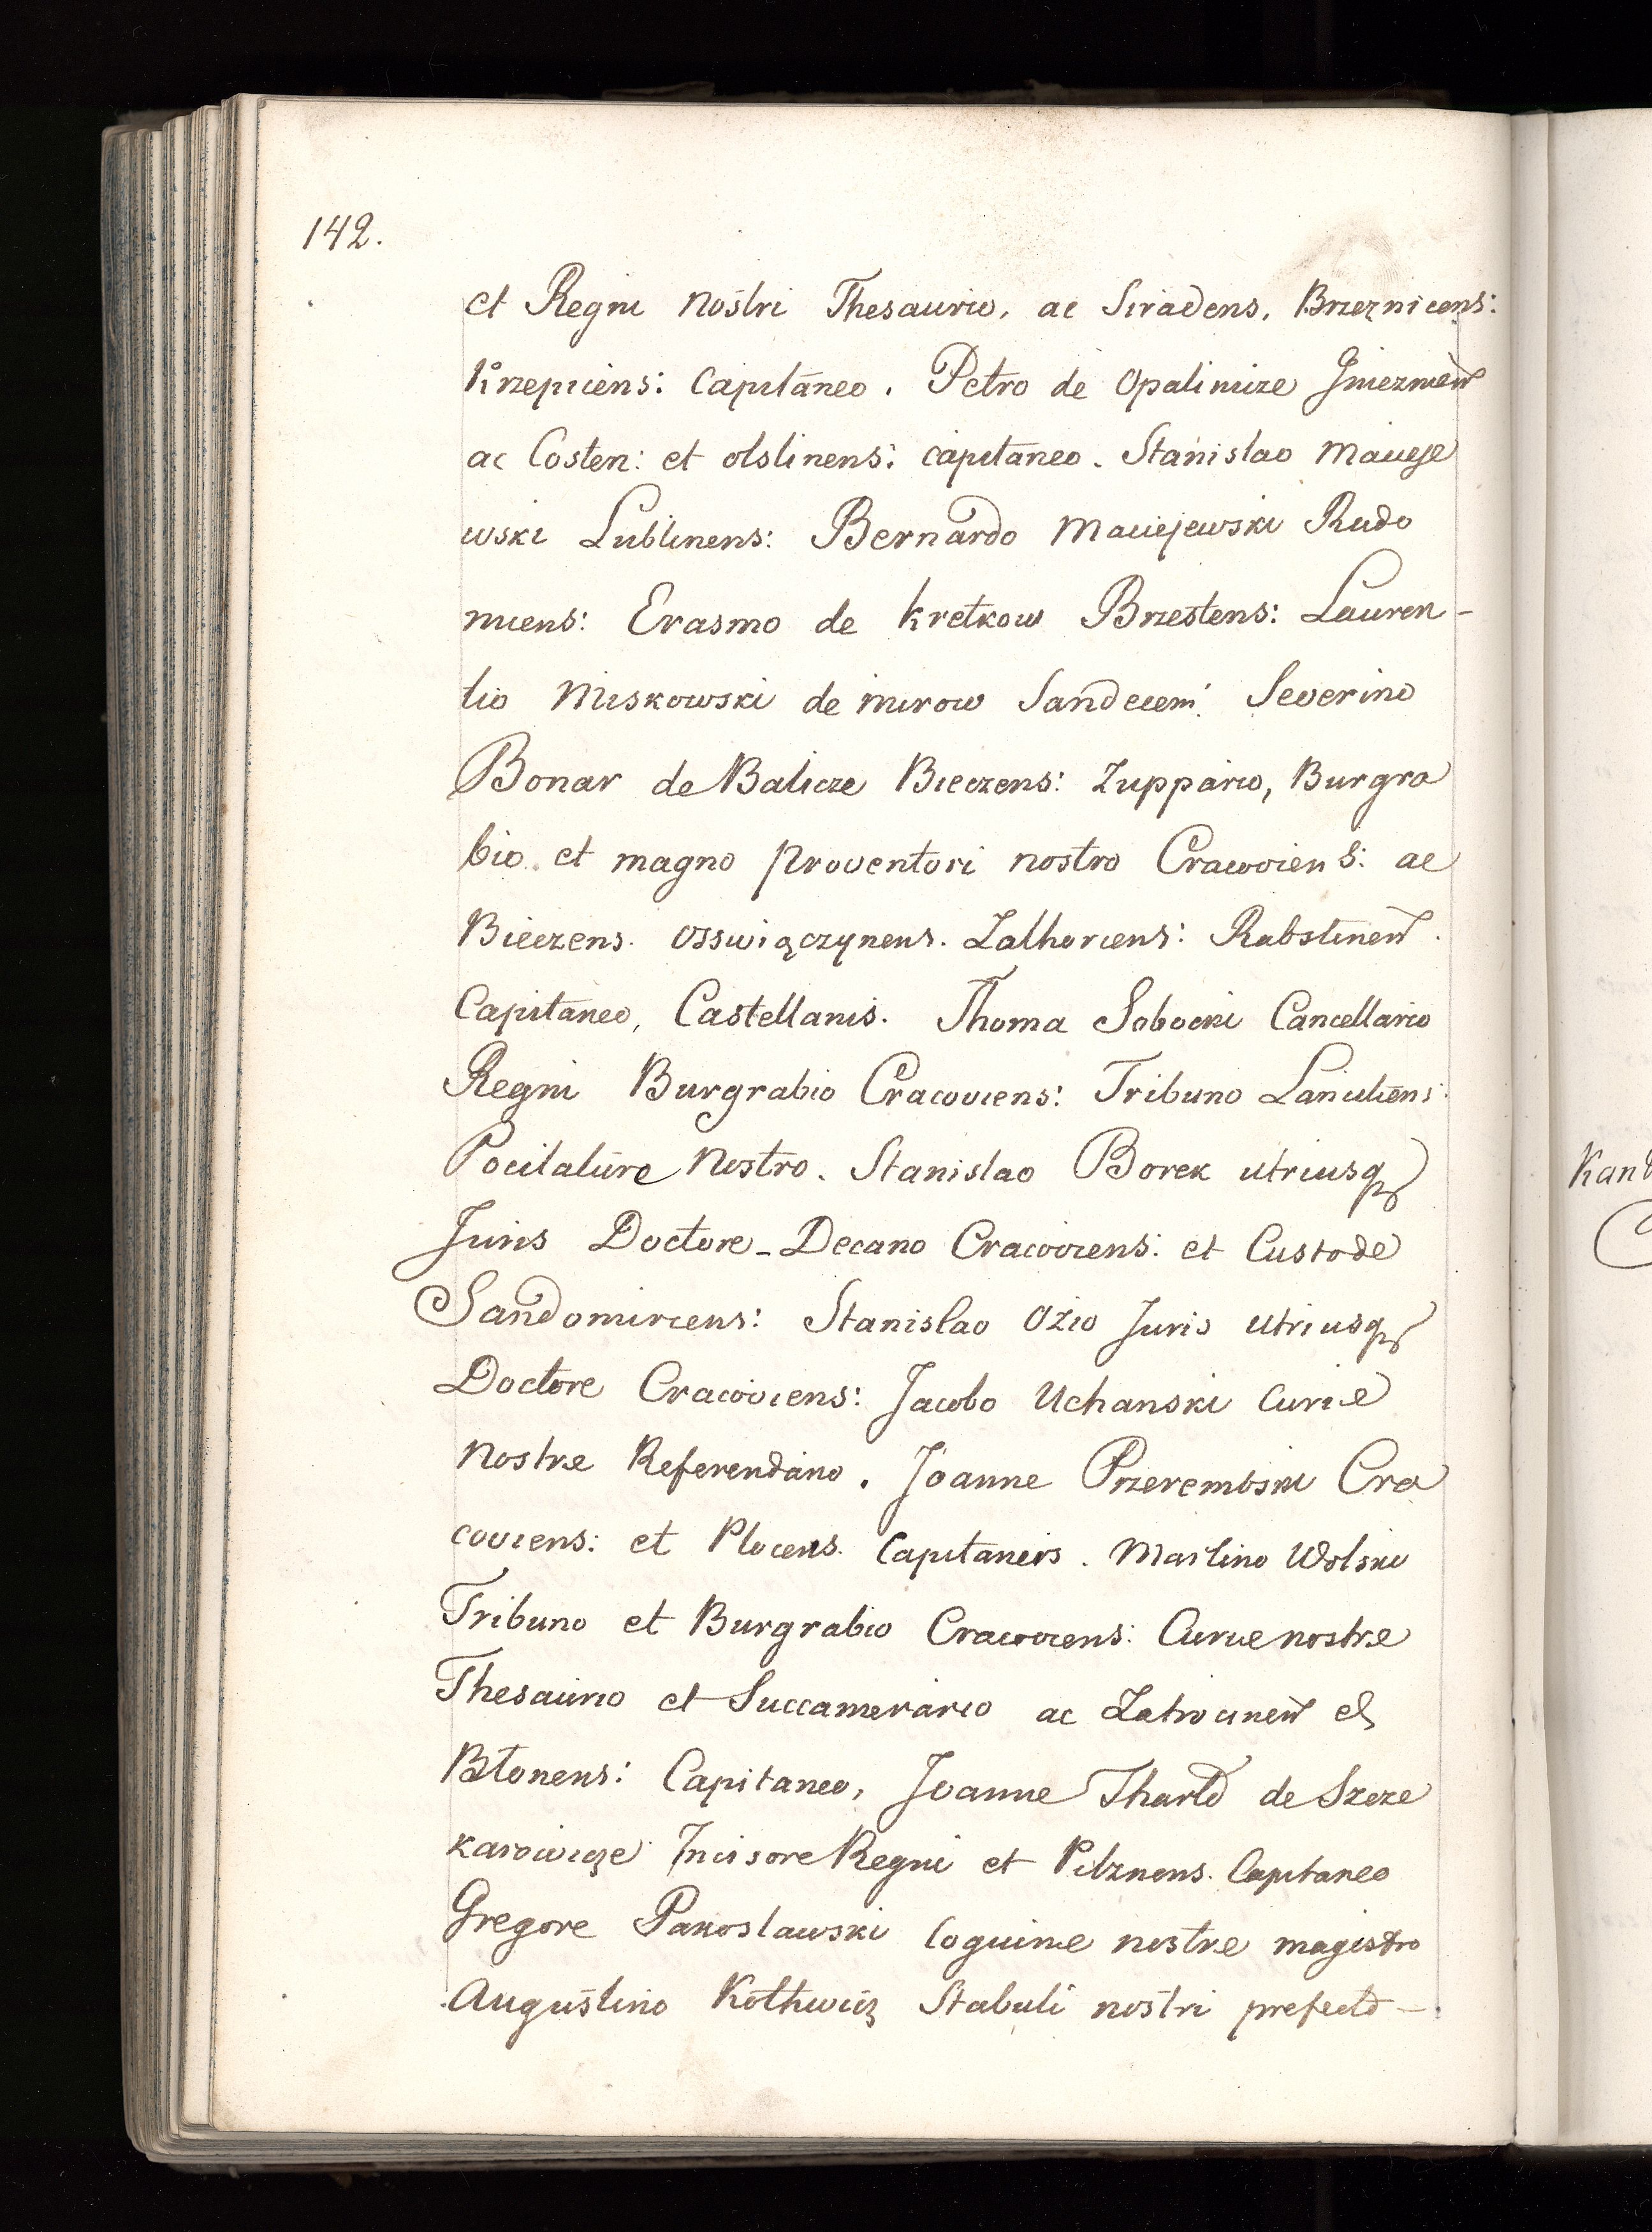 142.
et Regni nostri Thesaurio, ac Siradens, Brzeznicens:
Krzepicens: Capitaneo. Petro de Opalinicze Gnieznen
ac Costen: et olslinens: capitaneo. Stanislao Macieje
wski Lublinens: Bernardo Maciejewski Rado
miens: Erasmo de Kretkow Brzestens: Lauren-
tio Miskowski de mirow Sandecen: Severino
Bonar de Balicze Bieczens: Zuppario, Burgra
bio et magno proventori nostro Cracoviens: ac
Bieczens. Osswiączynens. Zathoriens: Rabstinen.
Capitaneo, Castellanis. Thoma Sobocki Cancellario
Regni Burgrabio Cracoviens: Tribuno Lanciciens:
Pocilature Nostro. Stanislao Borek utriusq
Juris Doctore - Decano Cracoviens: et Custode
Sandomiriens: Stanislao Ozio Juris utriusq
Doctore Cracoviens: Jacobo Uchanski Curie
nostre Referendario. Joanne Przerembski Cra
coviens: et Plocens. Capitaneis. Martino Wolski
Tribuno et Burgrabio Cracoviens: Curie nostre
Thesaurio et Succamerario ac Latrocinen et
Btonens: Capitaneo, Joanne Tharld de Szcze
karowicze Incisore Regni et Pilznens. Capitaneo
Gregore Pakoslawski Coquine nostre magistro
Augustino Kothwicz Stabuli nostri prefecto -
Kand